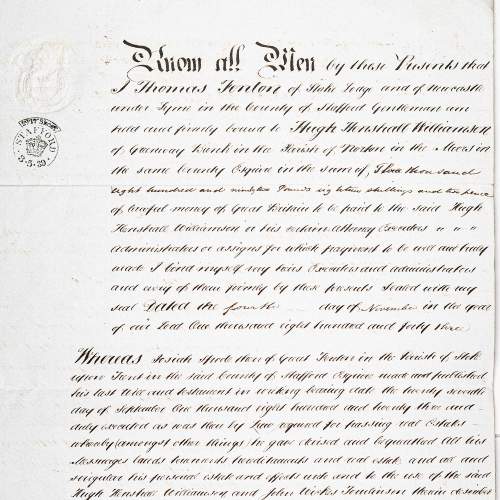 Know all Men by these Presents that
I Thomas Fenton of Stoke Lodge and of Newcastle
under Lyme in the County of Stafford Gentleman am
held and firmly bound to Hugh Henshall Williamson
of Greenway Bank in the Parish of Norton in the Moors in
the same County Esquire in the sum of Three thousand
eight hundred and ninety Pounds eighteen shillings and ten pence
of lawful money of Great Britain to be paid to the said Hugh
Henshall Williamson or his certain Attorney Executors
Administrators or assigns for which payment to be well and truly
made I bind myself my heirs Executors and administrators
and every of them firmly by these presents Sealed with my
seal Dated the fourth day of November in the year
of our Lord One thousand eight hundred and forty three
STAFFORD
3-5-39
Whereas Josiah Spode then of Great Fenton in the Parish of Stoke
upon Trent in the said County of Stafford Esquire made and published
his last Will and testament in writing bearing date the twenty seventh
day of September One thousand eight hundred and twenty three and
duly executed as was then by Law required for passing real Estates
whereby (amongst other things) he gave devised and bequeathed All his
Messuages lands tenements hereditaments and real estate and all and
singular his personal estate and effects unto and to the use of the said
Hugh Henshall Williamson and John Tomlinson therein described